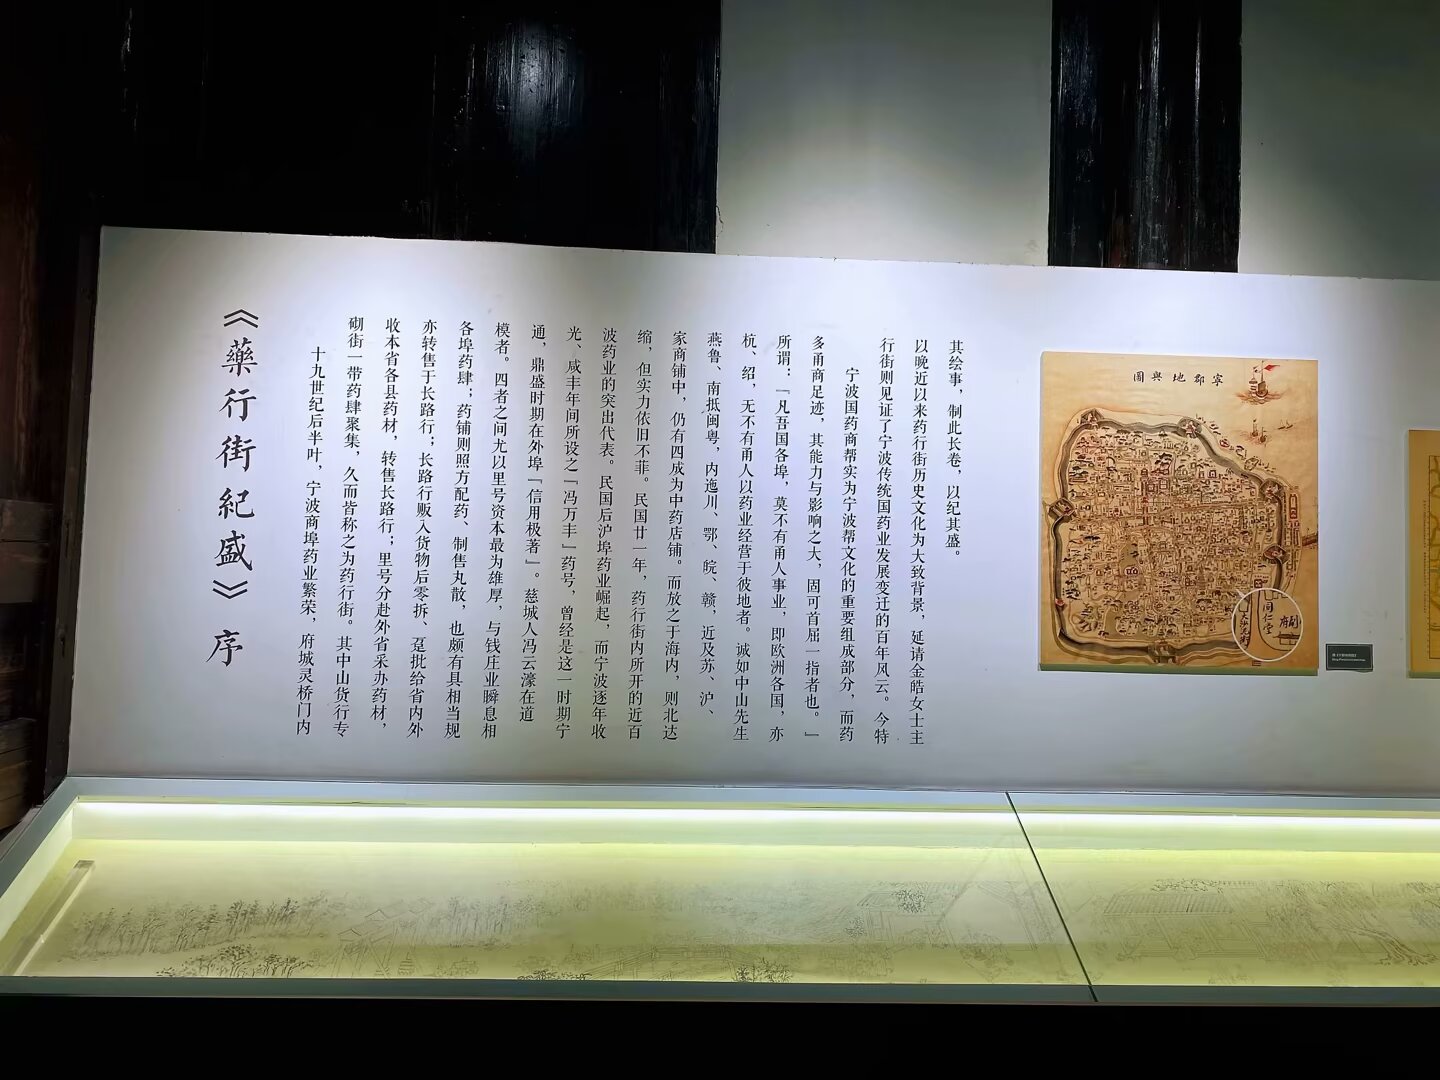 《藥行街紀盛》序
十九世纪后半叶，宁波商埠药业繁荣，府城灵桥门内
砌街一带药肆聚集，久而皆称之为药行街。其中山货行专
收本省各县药材，转售长路行；里号分赴外省采办药材，
亦转售于长路行；长路行贩入货物后零拆、趸批给省内外
各埠药肆；药铺则照方配药、制售丸散，也颇有具相当规
模者。四者之间尤以里号资本最为雄厚，与钱庄业瞬息相
通，鼎盛时期在外埠『信用极著』。慈城人冯云濠在道
光、咸丰年间所设之『冯万丰』药号，曾经是这一时期宁
波药业的突出代表。民国后沪埠药业崛起，而宁波逐年收
缩，但实力依旧不菲。民国廿一年，药行街内所开的近百
家商铺中，仍有四成为中药店铺。而放之于海内，则北达
燕鲁、南抵闽粤，内迤川、鄂、皖、赣，近及苏、沪、
杭、绍，无不有甬人以药业经营于彼地者。诚如中山先生
所谓：『凡吾国各埠，莫不有甬人事业，即欧洲各国，亦
多甬商足迹，其能力与影响之大，固可首屈一指者也。』
宁波国药商帮实为宁波帮文化的重要组成部分，而药
行街则见证了宁波传统国药业发展变迁的百年风云。今特
以晚近以来药行街历史文化为大致背景，延请金皓女士主
其绘事，制此长卷，以纪其盛。
寧郡地輿圖
同仁堂